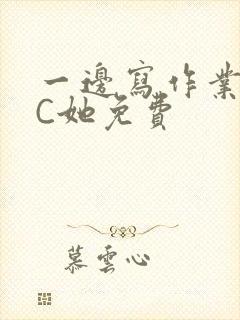 一邊寫作業
C她免費
慕雲心